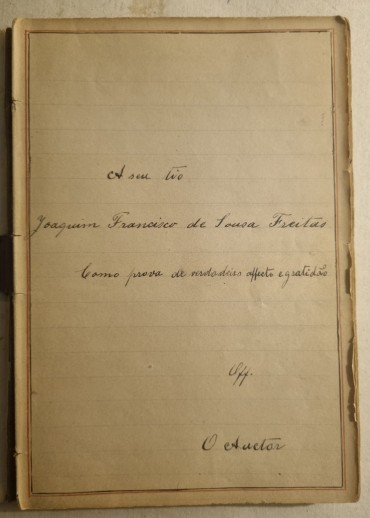 A seu tio
Joaquim Francisco de Sousa Freitas
Como prova de verdadeiro affecto e gratidão
Off.
O Auctor